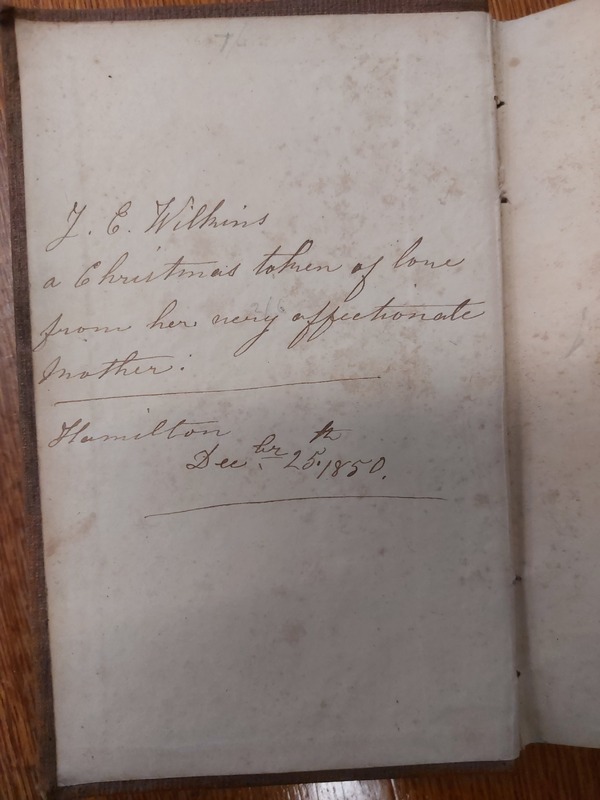 J. E. Wilkins
a Christmas token of love
from her very affectionate
Mother.
Hamilton
Dec br. 25th, 1850.